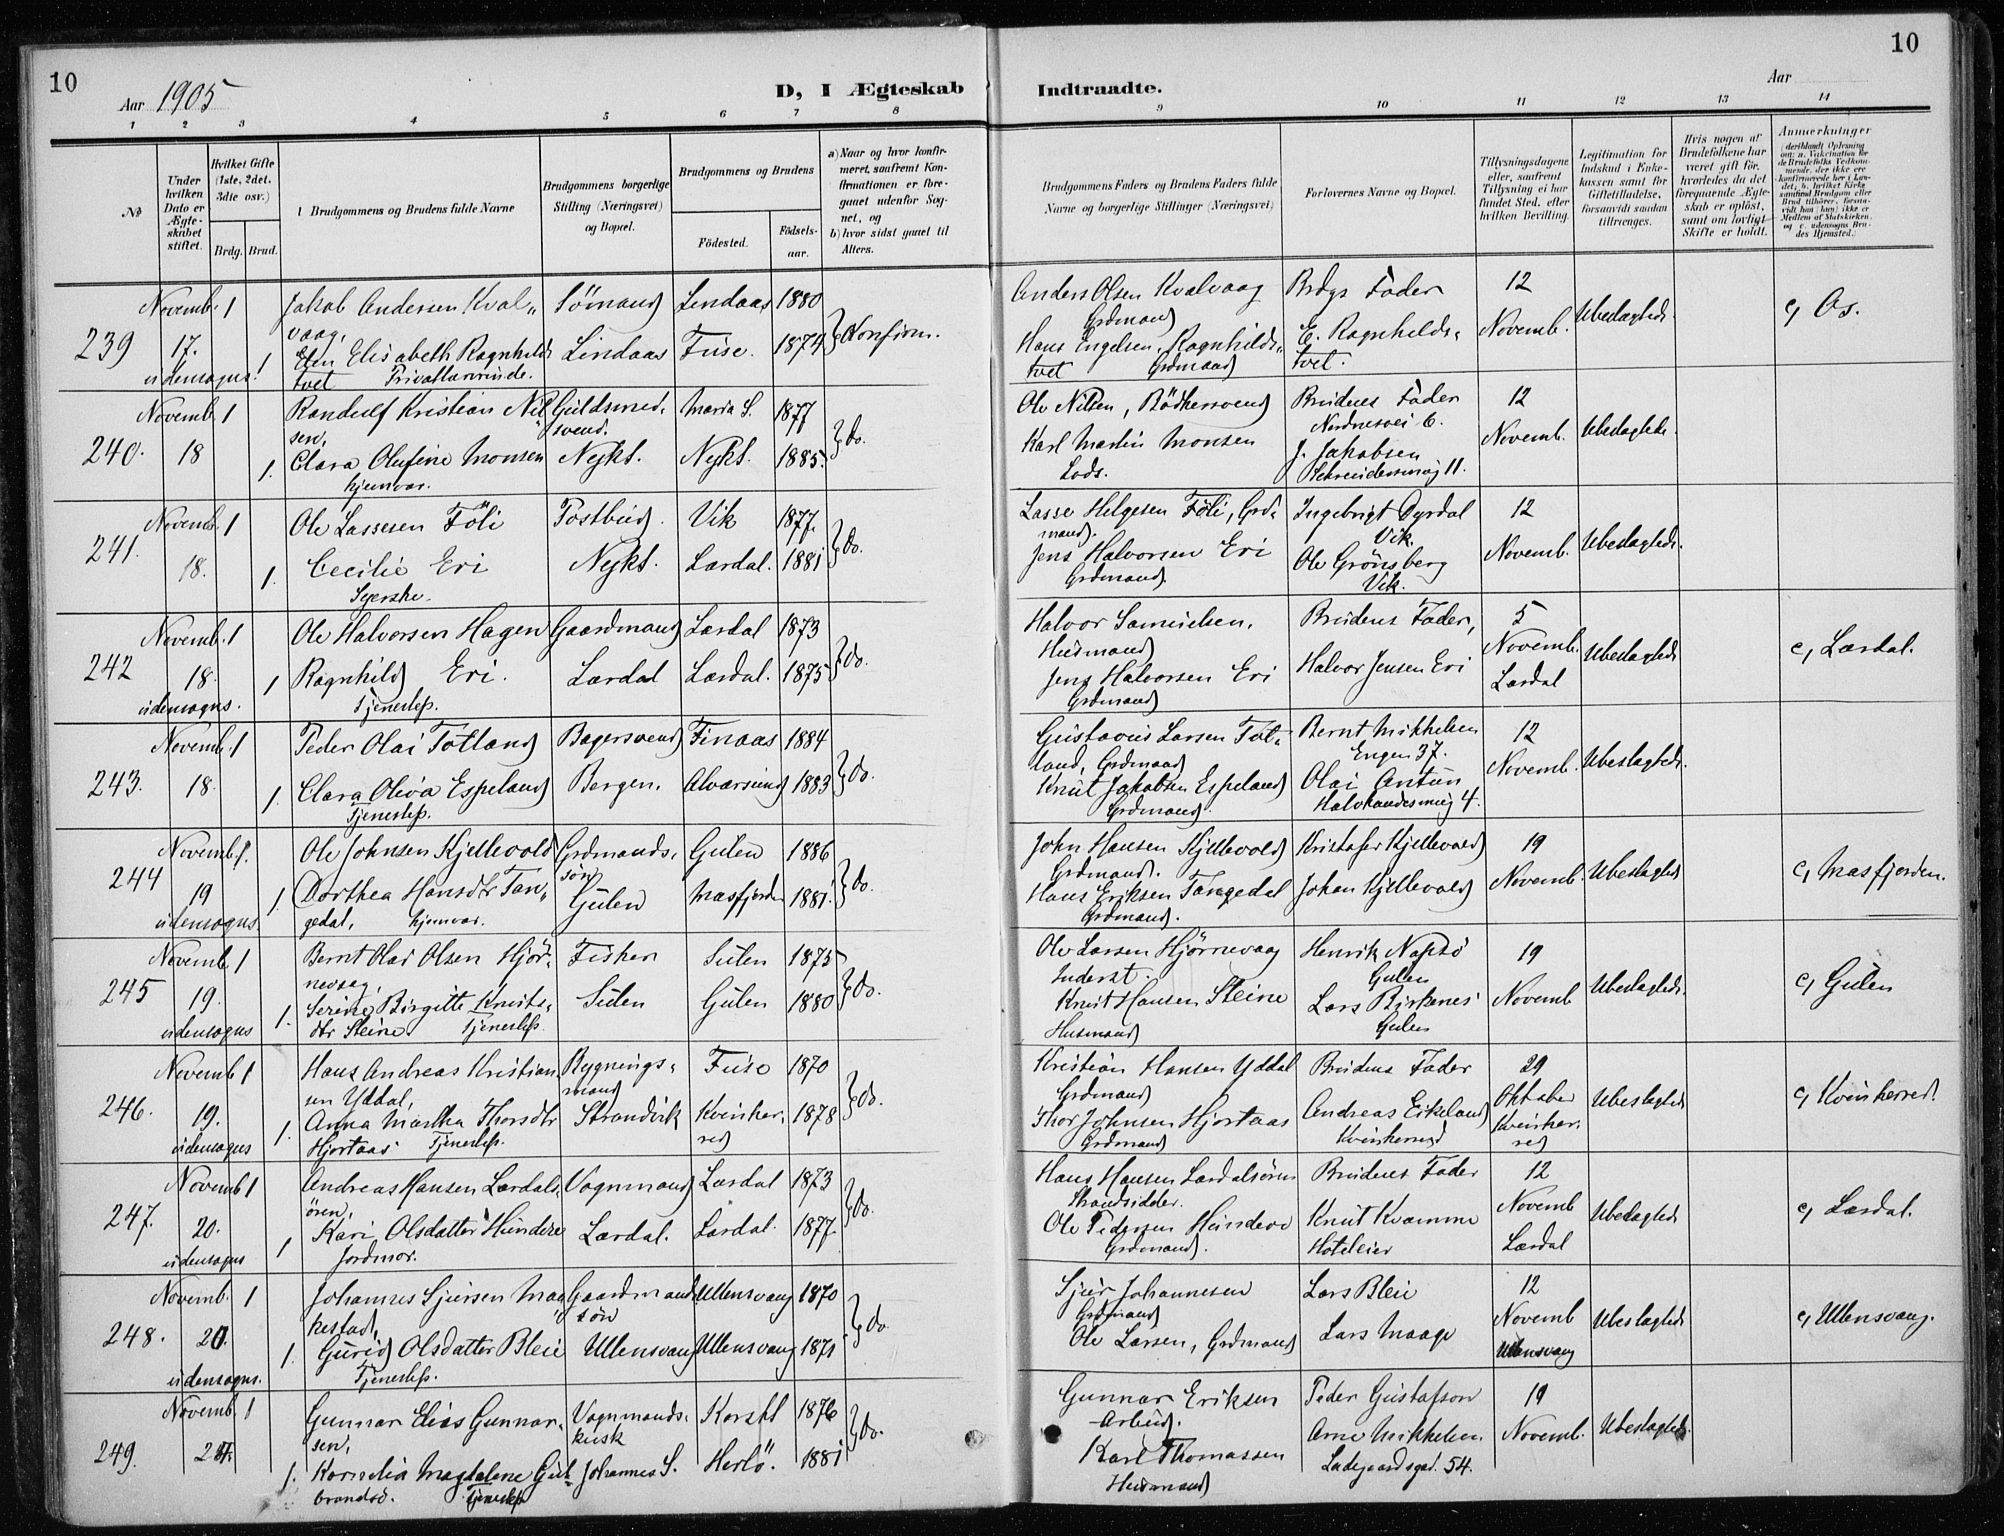 10
Aar 1905
D, I Ægteskab Indtraadte.
Aar
10
1 2 3 4 5 6 7 8 9 10 11 12 13 14
№
Under hvilken Dato er Ægteskabet stiftet.
Hvilket Gifte (1ste, 2det, 3die osv.)
Brdg. Brud.
Brudgommens og Brudens fulde Navne
Brudgommens borgerlige Stilling (Næringsvei) og Bopæl.
Brudgommens og Brudens
Födested.
Födselsaar.
a) Naar og hvor konfirmeret, saafremt Konfirmationen er foregaaet udenfor Sognet, og
b) hvor sidst gaaet til Alters.
Brudgommens Faders og Brudens Faders fulde Navne og borgerlige Stillinger (Næringsvei)
Forlovernes Navne og Bopæl.
Tillysningsdagene eller, saafremt Tillysning ei har fundet Sted, efter hvilken Bevilling.
Legitimation for Indskud i Enkekassen samt for Giftetilladelse, forsaavidt saadan tiltrænges.
Hvis nogen af Brudefolkene har været gift för, hvorledes da det foregaaende Ægteskab er oplöst, samt om lovligt Skifte er holdt.
Anmerkninger
239 Novemb. 17. udensogns 1 1
Jakob Andersen Kvalvaag,
Elen Elisabeth Ragnhildstvet Privatlærerinde.
Sömand Lindaas
Lindaas 1880
Fuse. 1874
Konfirm.
Anders Olsen Kvalvaag Grdmand
Hans Engelsen Ragnhildstvet Grdmand
Brdgs Fader
E. Ragnhildstvet.
12 Novemb. Ubeslægtede. c, Os.
240. Novemb. 18 1 1.
Randulf Kristian Nilsen,
Clara Olufine Monsen hjemvær.
Guldsmedsvend. Nykt.
Maria S. 1877
Nykt. 1885.
do.
Ole Nilsen, Bödkersvend
Karl Martin Monsen Lods.
Brudens Fader Nordnesvei 6.
J. Jakobsen 11.
12 Novemb. Ubeslægtede.
241. Novemb. 18. 1 1.
Ole Lassesen Föli
Cecilie Eri Syerske.
Postbud. Nykt.
Vik 1877.
Lærdal. 1881
do.
Lasse Helgesen Föli, Grdmand.
Jens Halvorsen Eri Grdmand
Ingebrigt Dyrdal Vik.
Ole Grönsberg Vik.
12 Novemb. Ubeslægtede.
242 Novemb. 18. udensogns. 1 1
Ole Halvorsen Hagen
Ragnhild Eri. Tjenestep.
Gaardmand Lærdal
Lærdal 1873
Lærdal. 1875
do.
Halvor Samuelsen, Husmand
Jens Halvorsen Eri Grdmand
Brudens Fader,
Halvor Jensen Eri
5 Novemb. Lærdal Ubeslægtede c, Lærdal.
243. Novemb. 18. 1 1.
Peder Olai Totland
Clara Oliva Espeland Tjenestep.
Bagersvend Bergen.
Finaas 1884
Alversund 1883
do.
Gustavus Larsen Totland, Grdmand
Knut Jakobsen Espeland Grdmand
Bernt Mikkelsen Engen 37.
Olai Antun 4.
12 Novemb. Ubeslægtede.
244 Novemb. 19 udensogns 1. 1.
Ole Johnsen Kjellevold
Dorthea Hansdtr Tangedal, hjemvær.
Grdmandssön Gulen
Gulen 1886
Masfjorden 1881.
do.
John Hansen Kjellevold Grdmand.
Hans Eriksen Tangedal Grdmand.
Kristofer Kjellevold
Johan Kjellevold
19 Novemb. Ubeslægtede c, Masfjorden.
245 Novemb 19. udensogns 1 1.
Bernt Olai Olsen Hjörnevaag,
Serine Birgitte Knutsdtr Steine Tjenestep.
Fisker Sulen
Sulen 1875
Gulen 1880
do.
Ole Larsen Hjörnevaag Inderst.
Knut Hansen Steine Husmand
Henrik Napsö Gulen
Lars Birkenes Gulen
19 Novemb Ubeslægtede. c, Gulen
246. Novemb 19. udensogns 1 1.
Hans Andreas Kristiansen Yddal,
Anna Martha Thorsdtr Hjortaas Tjenestep.
Bygningsmand Strandvik
Fuse 1870
Kvinherred 1878
do.
Kristian Hansen Yddal Grdmand
Thor Johnsen Hjortaas Grdmand
Brudens Fader
Andreas Eikeland Kvinherred
29 Oktober Kvinherred Ubeslægtede c, Kvinherred.
247. Novemb 20. udensogns 1 1
Andreas Hansen Lærdalsören,
Kari Olsdatter Hundere Jordmor.
Vognmand Lærdal.
Lærdal 1873
Lærdal. 1877.
do.
Hans Hansen Lærdalsören Strandsidder.
Ole Pedersen Hundere Grdmand.
Brudens Fader
Knut Kvamme Hoteleier
12 Novemb Lærdal Ubeslægtede c, Lærdal.
248. Novemb. 20. udensogns. 1 1.
Johannes Sjursen Maakestad,
Gurid Olsdatter Bleie Tjenestep.
Gaardmandssön Ullensvang
Ullensvang 1870
Ullensvang 1871
do.
Sjur Johannesen Grdmand
Ole Larsen, Grdmand
Lars Bleie
Lars Maage
12 Novemb Ullensvang Ubeslægtede c, Ullensvang.
249. Novemb. 1 1.
Gunnar Elias Gunnarsen,
Kornelia Magdalene Gulbrandsd. Tjenestep
Vognmandskusk Johannes S.
Korskk 1876
Herlö. 1881
do.
Gunnar Eriksen Arbeid.
Karl Thomassen Husmand
Peder Gustafson
Arne Mikkelsen Ladegaardsgad. 54.
19 Novemb. Ubeslægtede